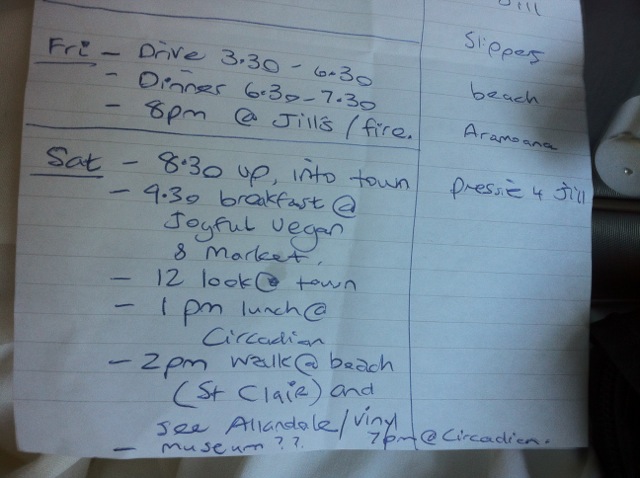 Jill
Fri - Drive 3.30 - 6.30
- Dinner 6.30-7.30
- 8pm @ Jill's / fire.
Slippers
beach
Aramoana
pressie 4 Jill
Sat - 8.30 up, into town
- 9.30 breakfast @
Joyful Vegan
& Market.
- 12 look @ town
- 1pm lunch @
Circadian
- 2pm walk @ beach
(St Clair) and
see Allandale/vinyl
- museum ?? 7pm @ Circadian.